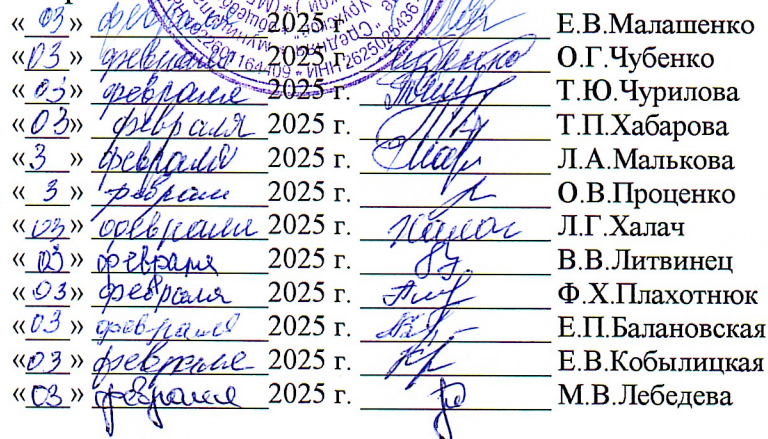 «03» февраля 2025 г. Е.В.Малашенко
«03» февраля 2025 г. Чубенко О.Г.Чубенко
«03» февраля 2025 г. Т.Ю.Чурилова
«03» февраля 2025 г. Т.П.Хабарова
«3» февраля 2025 г. Л.А.Малькова
«3» феврал 2025 г. О.В.Проценко
«03» февраля 2025 г. Халач Л.Г.Халач
«03» февраля 2025 г. В.В.Литвинец
«03» февраля 2025 г. Ф.Х.Плахотнюк
«03» февраля 2025 г. Е.П.Балановская
«03» февраля 2025 г. Е.В.Кобылицкая
«03» февраля 2025 г. М.В.Лебедева